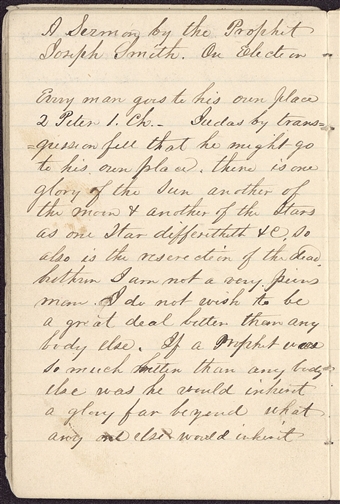 A Sermon by the Prophet
Joseph Smith. On Election
Evry man goes to his own place
2 Peter 1. Ch.- Judas by trans=
=gression fell that he might go
to his own place. there is one
glory of the Sun another of
the moon & another of the Stars
as one Star differetheth &C, so
also is the reserection of the Dead,
brethren I am not a very pious
man. I do not wish to be
a great deal better than any
body else. If a Prophet was
so much better than any body
else was he would inherit
a glory far beyond what
any one else would inherit